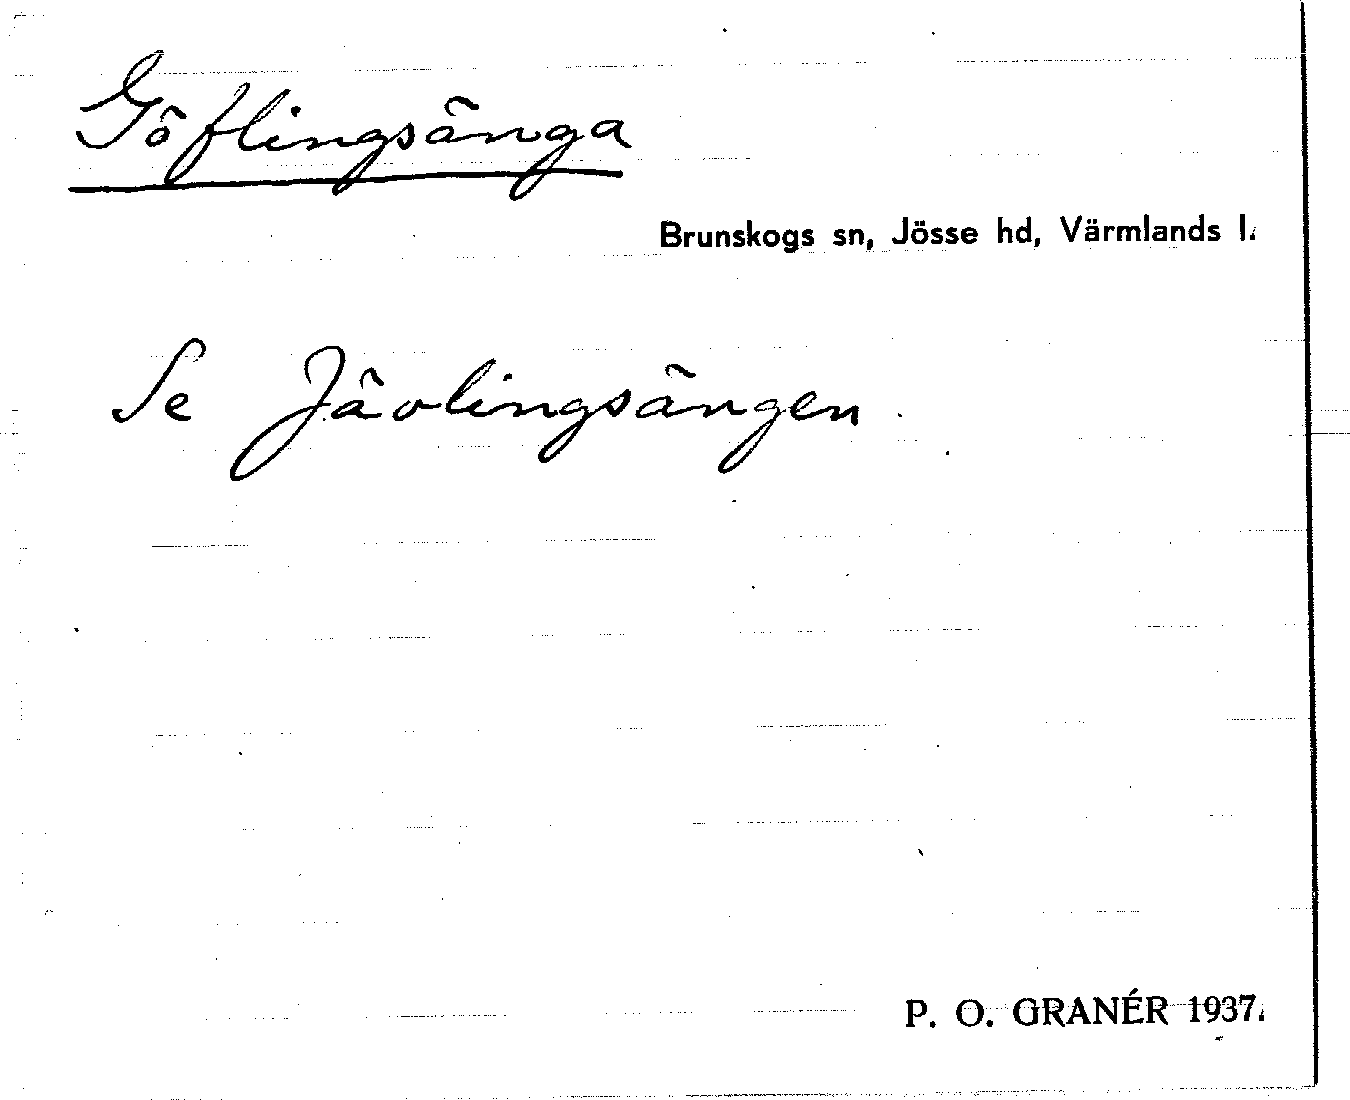 Göflingsänga
Brunskogs sn, Jösse hd, Värmlands l.
Se Jävlingsängen.
P. O. GRANÉR 1937.